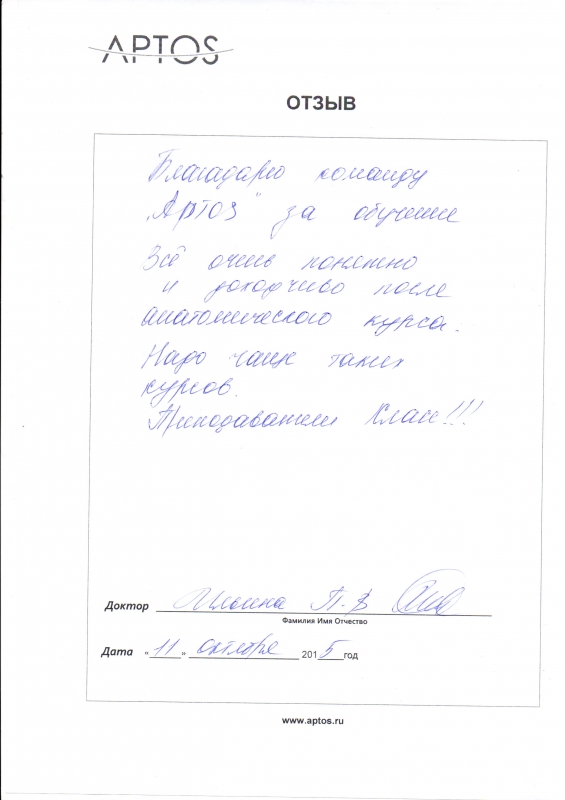 APTOS
ОТЗЫВ
Благадарю команду
„Артоз" за обучение
Всё очень понятно
и доходчиво после
анатомического курса.
Надо чаще таких
курсов.
Преподаватели Класс!!!
Доктор Ильина П.В
Фамилия Имя Отчество
Дата «11» октября 2015 год
www.aptos.ru